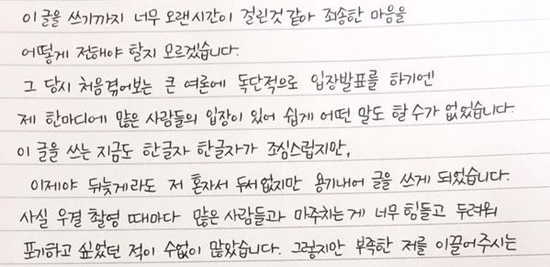 이 글을 쓰기까지 너무 오랜시간이 걸린것 같아 죄송한 마음을
어떻게 전해야 할지 모르겠습니다.
그 당시 처음겪어보는 큰 여론에 독단적으로 입장발표를 하기엔
제 한마디에 많은 사람들의 입장이 있어 쉽게 어떤 말도 할 수가 없었습니다.
이 글을 쓰는 지금도 한글자 한글자가 조심스럽지만,
이제야 뒤늦게라도 저 혼자서 두서없지만 용기내어 글을 쓰게 되었습니다.
사실 우결 촬영 때마다 많은 사람들과 마주치는게 너무 힘들고 두려워
포기하고 싶었던 적이 수없이 많았습니다. 그렇지만 부족한 저를 이끌어주시는